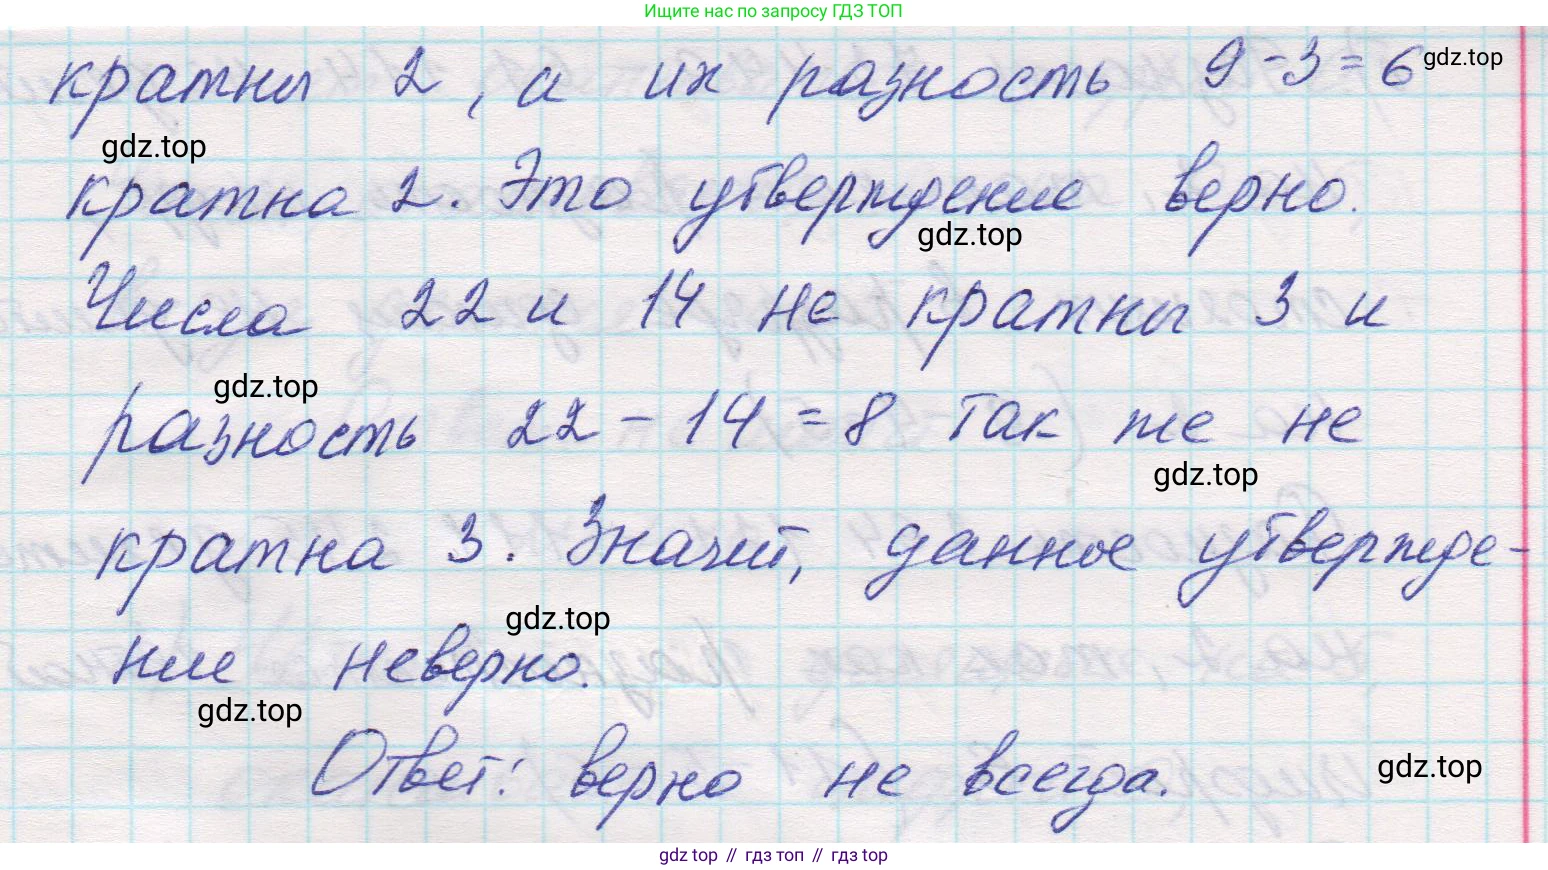 Ищите нас по запросу ГДЗ ТОП
кратны 2, а их разность 9-3=6 gdz.top
gdz.top
кратна 2. Это утверждение верно.
gdz.top
Числа 22 и 14 не кратны 3 и
gdz.top
разность 22-14=8 так же не
gdz.top
кратна 3. Значит, данное утвержде-
gdz.top
ние неверно.
gdz.top
Ответ: верно не всегда.
gdz.top
gdz top // гдз топ // gdz top